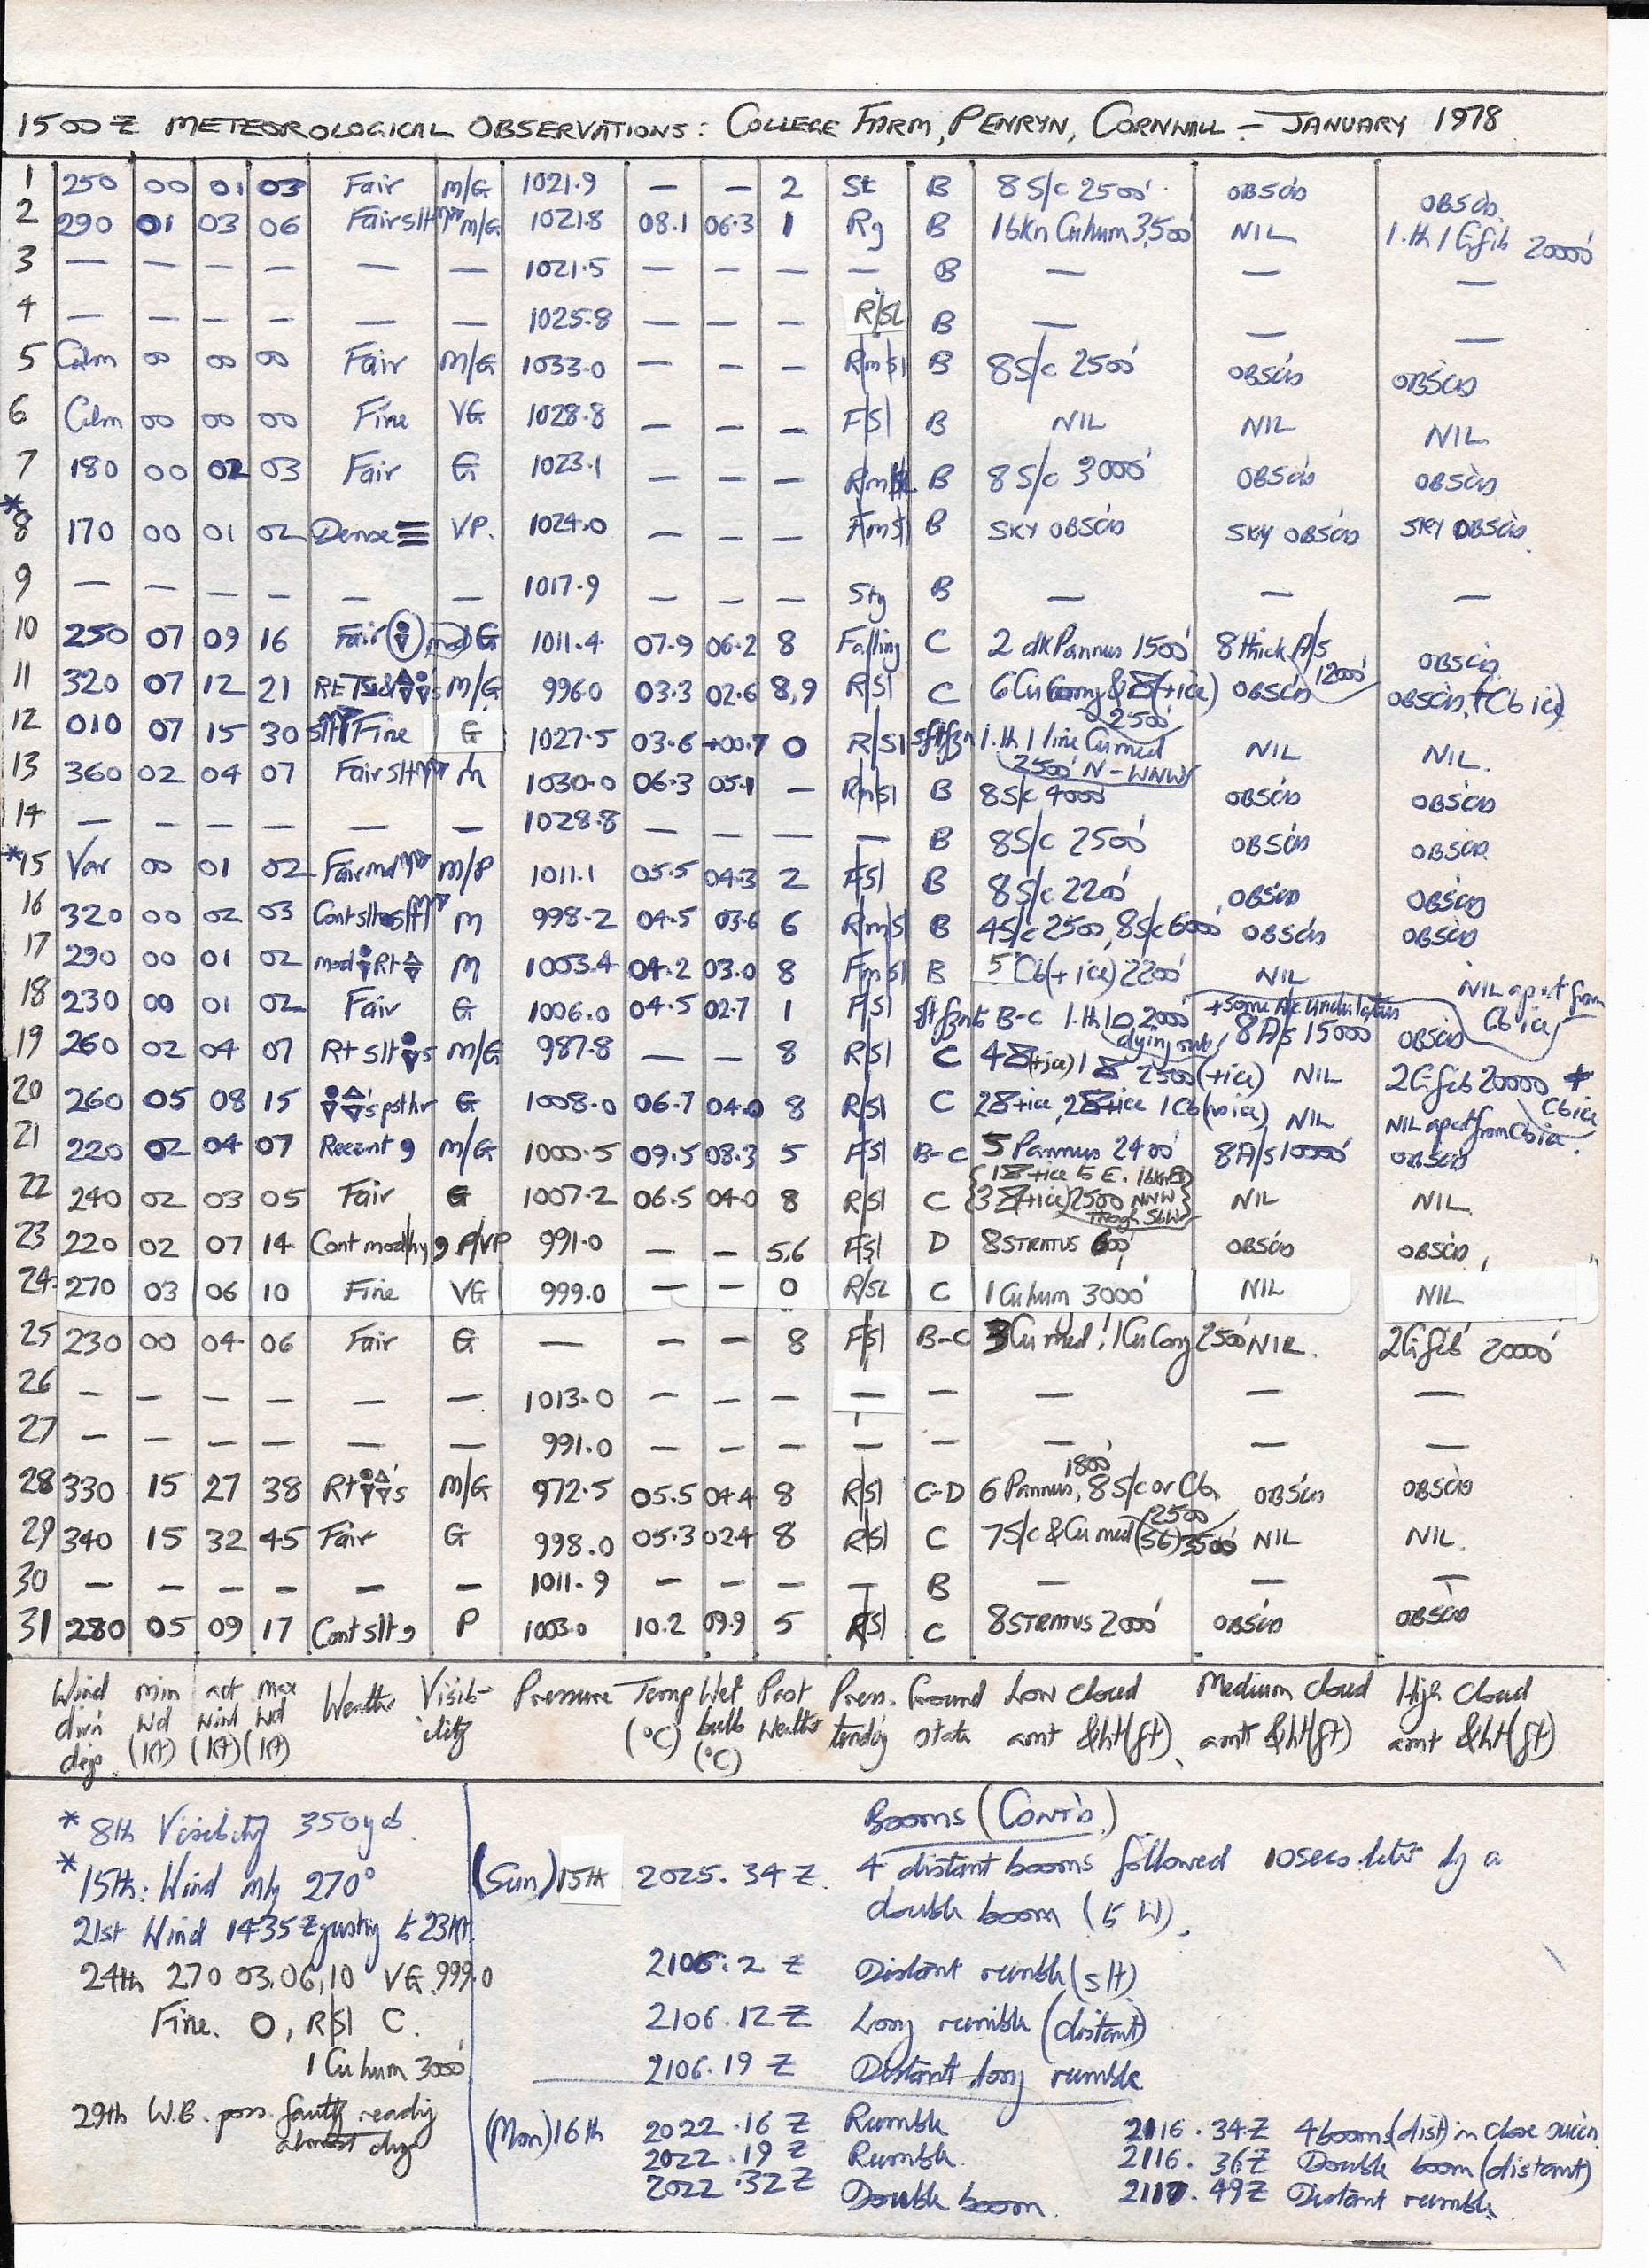 1500 Z METEOROLOGICAL OBSERVATIONS: COLLEGE FARM, PENRYN, CORNWALL – JANUARY 1978
1 250 00 01 03 Fair M/G 1021.9 — — 2 St B 8 S/c 2500' OBSC'D OBSC'D
2 290 01 03 06 Fair slt M/G 1021.8 08.1 06.3 1 Rg B 16kn Cu hum 3,500' NIL 1.th 1 Ci fib 20000'
3 — — — — — — 1021.5 — — — — B — — —
4 — — — — — — 1025.8 — — — R/SL B — — —
5 Calm 00 00 00 Fair M/G 1033.0 — — — R m Sl B 8 S/c 2500' OBSC'D OBSC'D
6 Calm 00 00 00 Fine VG 1028.8 — — — F/Sl B NIL NIL NIL
7 180 00 02 03 Fair G 1023.1 — — — B 8 S/c 3000' OBSC'D OBSC'D
*8 170 00 01 02 Dense ≡ VP. 1024.0 — — — F m Sl B SKY OBSC'D SKY OBSC'D SKY OBSC'D
9 — — — — — — 1017.9 — — — Sty B — — —
10 250 07 09 16 Fair G 1011.4 07.9 06.2 8 Falling C 2 dk Pannus 1500' 8 thick A/s 12000' OBSC'D
11 320 07 12 21 M/G 996.0 03.3 02.6 8,9 R/Sl C 6 Cu cong & (+ice) 2500' OBSC'D OBSC'D (+Cb ice)
12 010 07 15 30 slt Fine G 1027.5 03.6 +00.7 0 R/Sl 1.th 1 line Cu med 2500' N – WNW NIL NIL.
13 360 02 04 07 Fair slt M 1030.0 06.3 05.1 — R m Sl B 8 S/c 4000' OBSC'D OBSC'D
14 — — — — — — 1028.8 — — — — B 8 S/c 2500' OBSC'D OBSC'D
*15 Var 00 01 02 Fair md M/P 1011.1 05.5 04.3 2 F/Sl B 8 S/c 2200' OBSC'D OBSC'D
16 320 00 02 03 Cont slt M 998.2 04.5 03.6 6 R m Sl B 4 S/c 2500, 8 S/c 6000' OBSC'D OBSC'D
17 290 00 01 02 mod Rt M 1003.4 04.2 03.0 8 F m Sl B 5 Cb (+ ice) 2200' NIL NIL apart from Cb ice
18 230 00 01 02 Fair G 1006.0 04.5 02.7 1 F/Sl B-C 1.th 2000' dying out + some A/c undulatus 8 A/s 15000 OBSC'D
19 260 02 04 07 Rt slt M/G 987.8 — — 8 R/Sl C 4 (+ice) 1 2500' (+ice) NIL 2 Ci fib 20000' + Cb ice
20 260 05 08 15 G 1008.0 06.7 04.0 8 R/Sl C 2 +ice, 2 +ice 1 Cb (no ice) NIL NIL apart from Cb ice.
21 220 02 04 07 Recent 9 M/G 1000.5 09.5 08.3 5 F/Sl B-C 5 Pannus 2400' 8 A/s 10000' OBSC'D
22 240 02 03 05 Fair G 1007.2 06.5 04.0 8 R/Sl C 1 +ice to E. 3 (+ice) 2500' NNW Trough NIL NIL
23 220 02 07 14 Cont mod/hy 9 P/VP 991.0 — — 5,6 F/Sl D 8 STRATUS 600' OBSC'D OBSC'D
24 270 03 06 10 Fine VG 999.0 — — 0 R/SL C 1 Cu hum 3000' NIL NIL
25 230 00 04 06 Fair G — — — 8 F/Sl B-C 3 Cu med! 1 Cu Cong 2500' NIL. 2 Ci fib 20000'
26 — — — — — — 1013.0 — — — — — — — —
27 — — — — — — 991.0 — — — — — — — —
28 330 15 27 38 Rt M/G 972.5 05.5 04.4 8 R/Sl C-D 6 Pannus 1800', 8 S/c or Cb, 2500 OBSC'D OBSC'D
29 340 15 32 45 Fair G 998.0 05.3 02.4 8 R/Sl C 7 S/c & Cu med (S6) 3500' NIL NIL.
30 — — — — — — 1011.9 — — — — B — — —
31 280 05 09 17 Cont slt 9 P 1003.0 10.2 09.9 5 R/Sl C 8 STRATUS 2000' OBSC'D OBSC'D
Wind dir'n degs. min Wd (Kt) act Wind (Kt) Max Wd (Kt) Weather Visib-ility Pressure Temp (°C) Wet bulb (°C) Past Weather Press. tendcy Ground state Low cloud amt & ht (ft) Medium cloud amt & ht (ft) High Cloud amt & ht (ft)
* 8th Visibility 350 yds.
* 15th: Wind mly 270°
21st Wind 1435 Z gusting to 23 Kt.
24th 270 03,06,10 VG. 999.0
Fine. 0, R/Sl C.
1 Cu hum 3000'
29th W.B. poss. faulty reading
almost dry
BOOMS (CONT'D.)
(Sun) 15th 2025.34 Z. 4 distant booms followed 10 secs. later by a
double boom (to W).
2106.2 Z Distant rumble (slt)
2106.12 Z Long rumble (distant)
2106.19 Z Distant long rumble
(Mon) 16th 2022.16 Z Rumble
2022.19 Z Rumble.
2022.32 Z Double boom.
2116.34 Z 4 booms (dist) in close succn.
2116.36 Z Double boom (distant)
2117.49 Z Distant rumble.